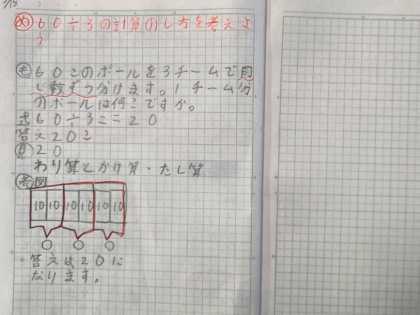 め 60÷3の計算のし方を考えよ
う
も 60このボールを3チームで同
じ数ずつ分けます。1チーム分
のボールは何こですか。
式 60÷3=20
答え20こ
見 20
わり算とかけ算・たし算
考 図
10 10 10 10 10 10
答えは20に
なります。